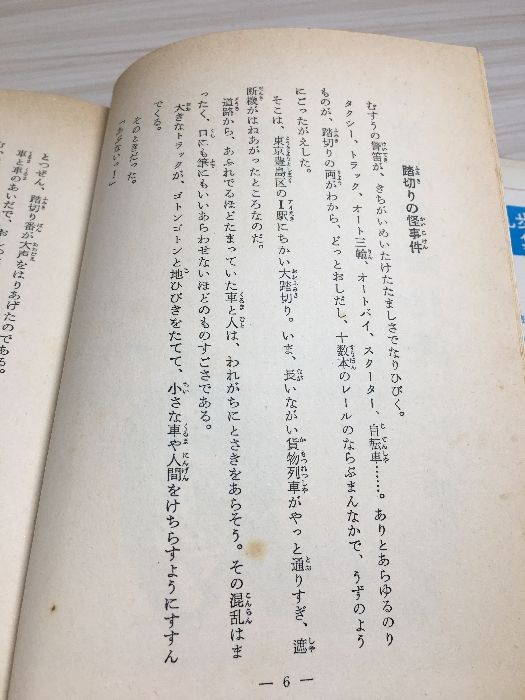 踏切りの怪事件
むすうの警笛が、きちがいめいたけたたましさでなりひびく。
タクシー、トラック、オート三輪、オートバイ、スクーター、自転車……。ありとあらゆるのり
ものが、踏切りの両がわから、どっとおしだし、十数本のレールのならぶまんなかで、うずのよう
にごったがえした。
そこは、東京豊島区のI駅にちかい大踏切り。いま、長いながい貨物列車がやっと通りすぎ、遮
断機がはねあがったところなのだ。
道路から、あふれでるほどたまっていた車と人は、われがちにとさきをあらそう。その混乱はま
ったく、口にも筆にもいいあらわせないほどのものすごさである。
大きなトラックが、ゴトンゴトンと地ひびきをたてて、小さな車や人間をけちらすようにすすん
でくる。
そのときだった。
「あぶないッ！」
— 6 —
とつぜん、踏切り番が大声をはりあげたのである。
車と車のあいだで、おしっ